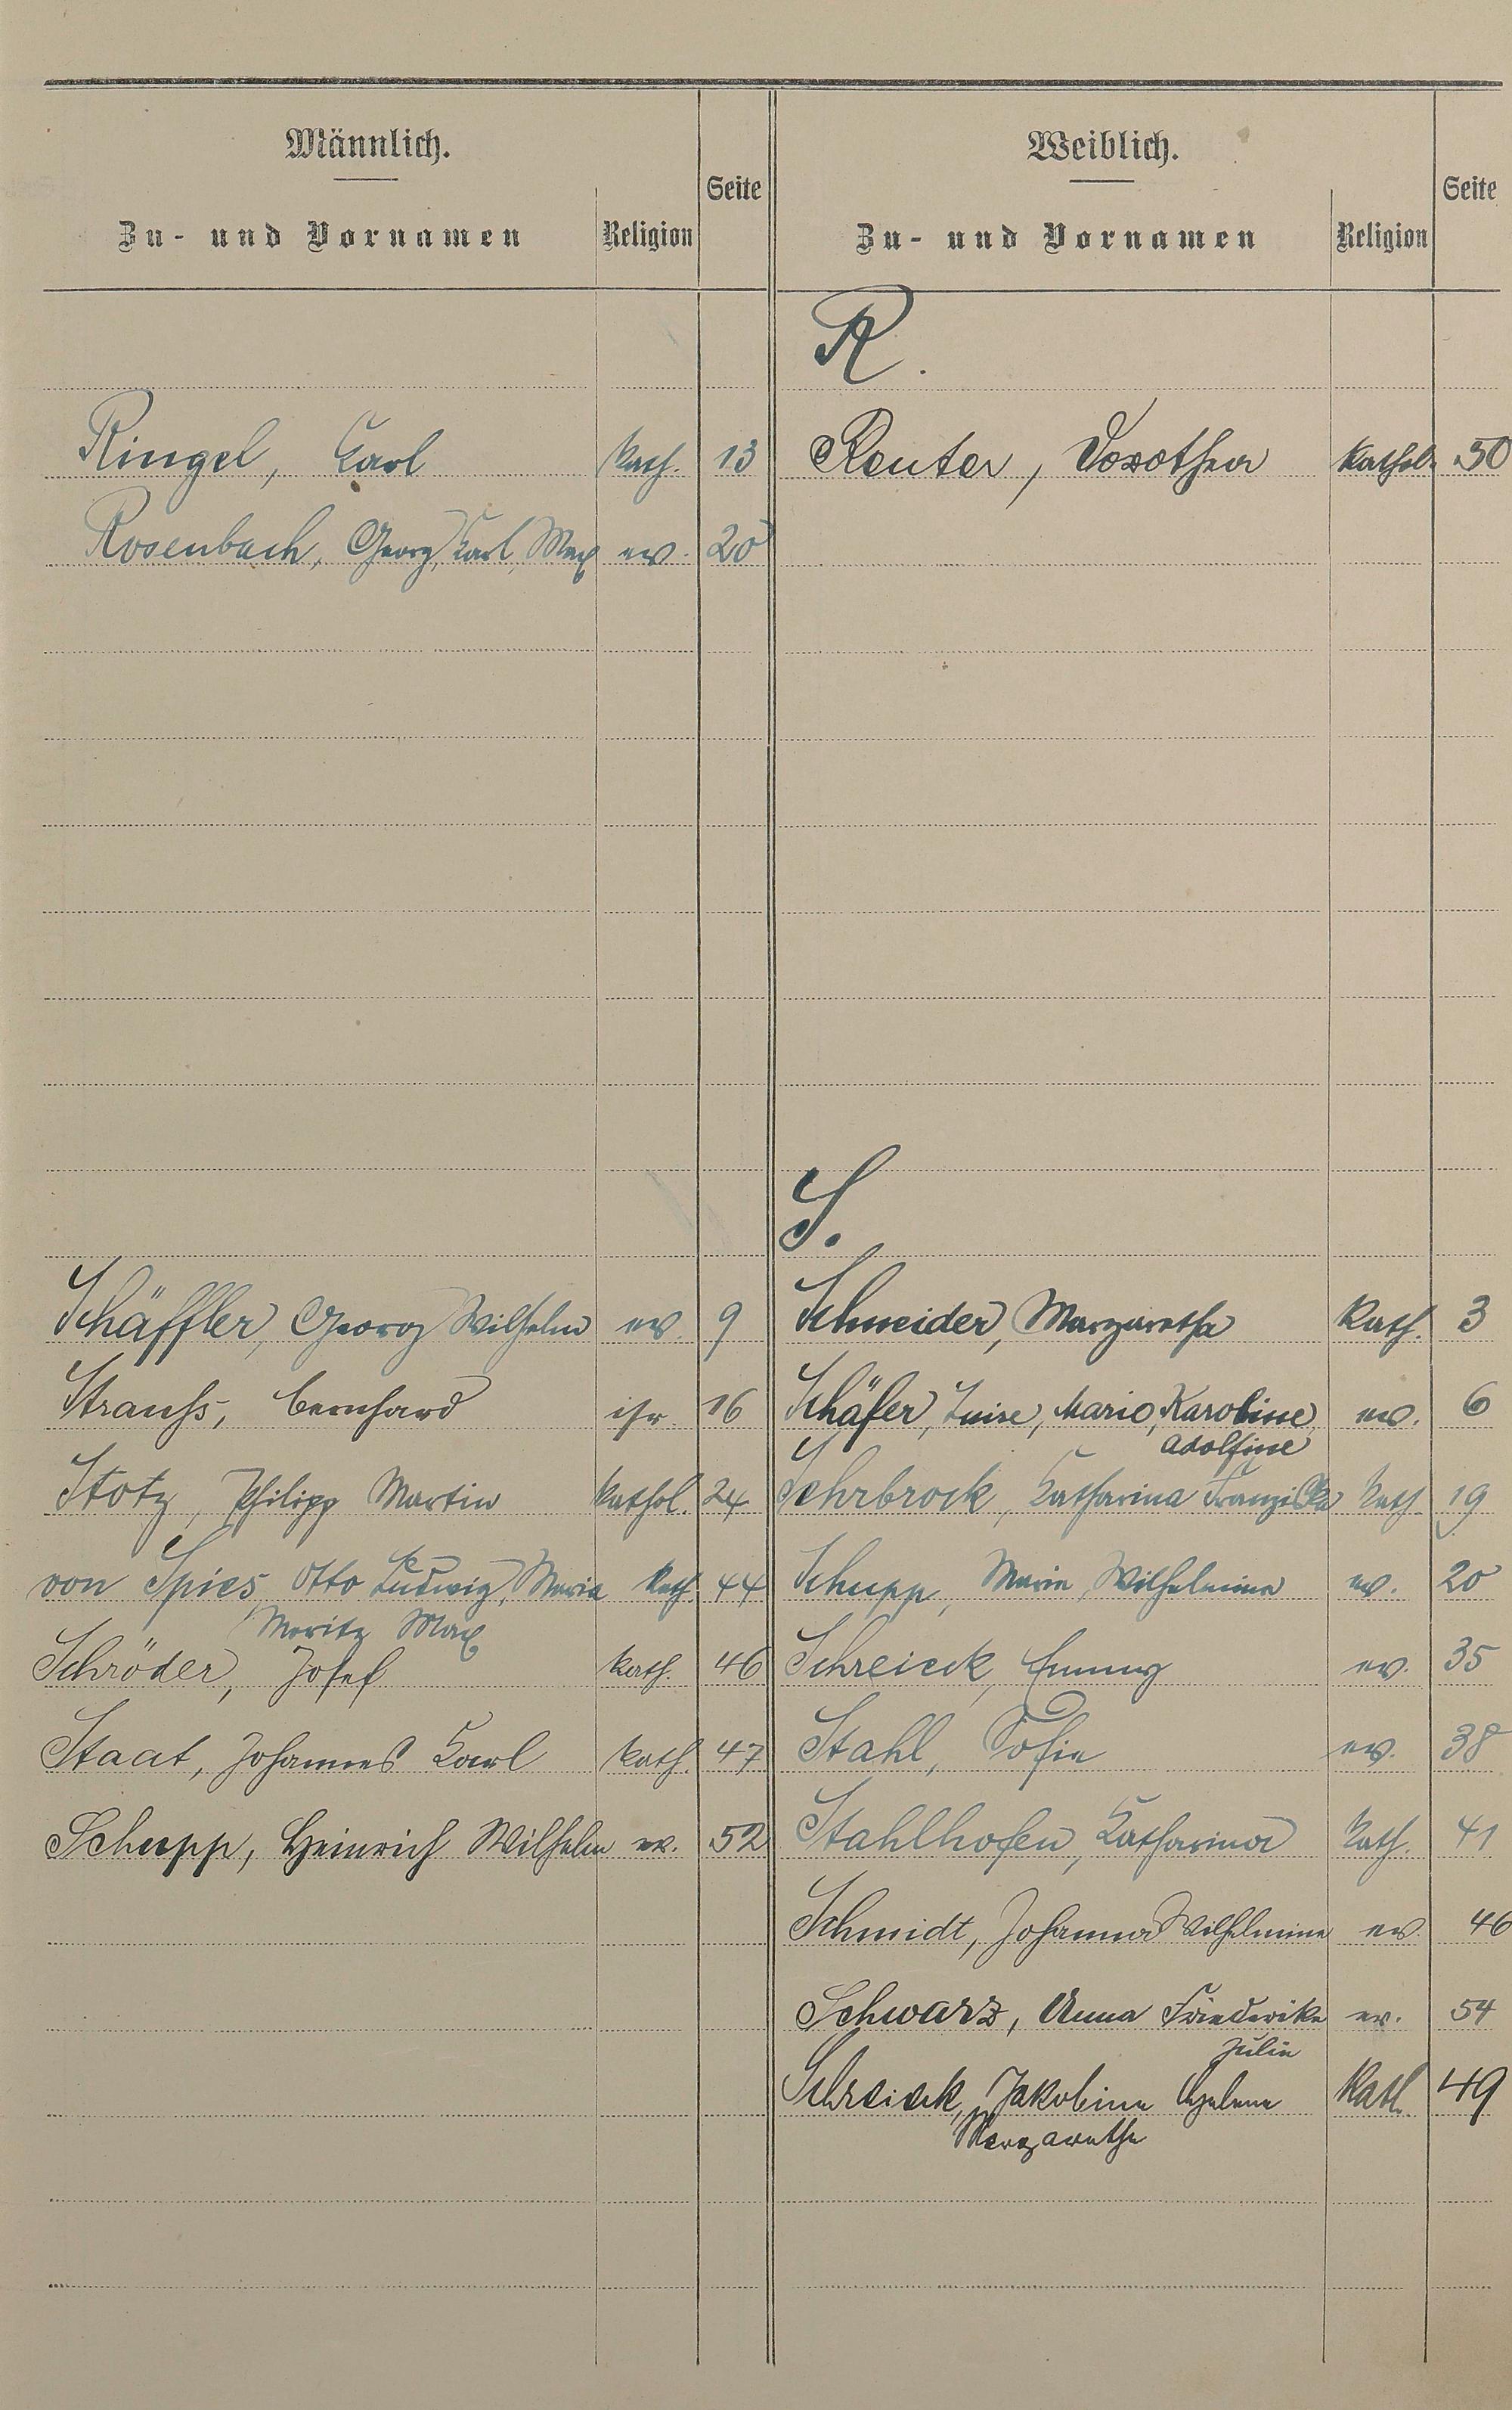 Männlich.
Zu- und Vornamen Religion Seite
Weiblich.
Zu- und Vornamen Religion Seite
R.
Ringel, Carl kath. 13
Reuter, Dorothea kathol. 50
Rosenbach, Georg, Karl, Max ev. 20
S.
Schäffler, Georg Wilhelm ev. 9
Schneider, Margaretha kath. 3
Strauß, Bernhard isr. 16
Schäfer, Luise, Marie, Karoline ev. 6
Adolfine
Stotz, Philipp Martin kathol. 24
Sehrbrock, Katharina Franziska kath. 19
von Spies, Otto Ludwig, Maria kath. 44
Moritz Max
Schupp, Maria, Wilhelmine ev. 20
Schröder, Josef kath. 46
Schreieck, Emmy ev. 35
Staat, Johannes Karl kath. 47
Stahl, Sofie ev. 38
Schupp, Heinrich Wilhelm ev. 52
Stahlhofen, Katharina kath. 41
Schmidt, Johanna Wilhelmine ev. 46
Schwarz, Anna Friederike ev. 54
Julie
Schreieck, Jakobine Helene Kath. 49
Margarethe